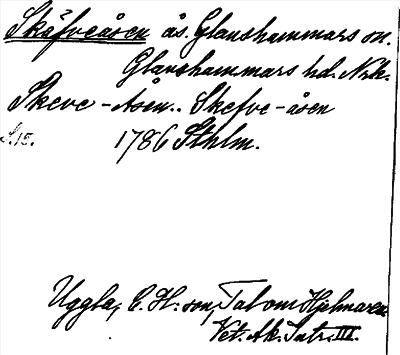 Skäfveåsen ås. Glanshammars sn.
Glanshammars hd. Nrk.
Skeve-Åsen.. Skefve-åsen
S.15. 1786 Sthlm.
Uggla, C. H:son, Tal om Hjelmaren
Vet. Ak. Intr. III.